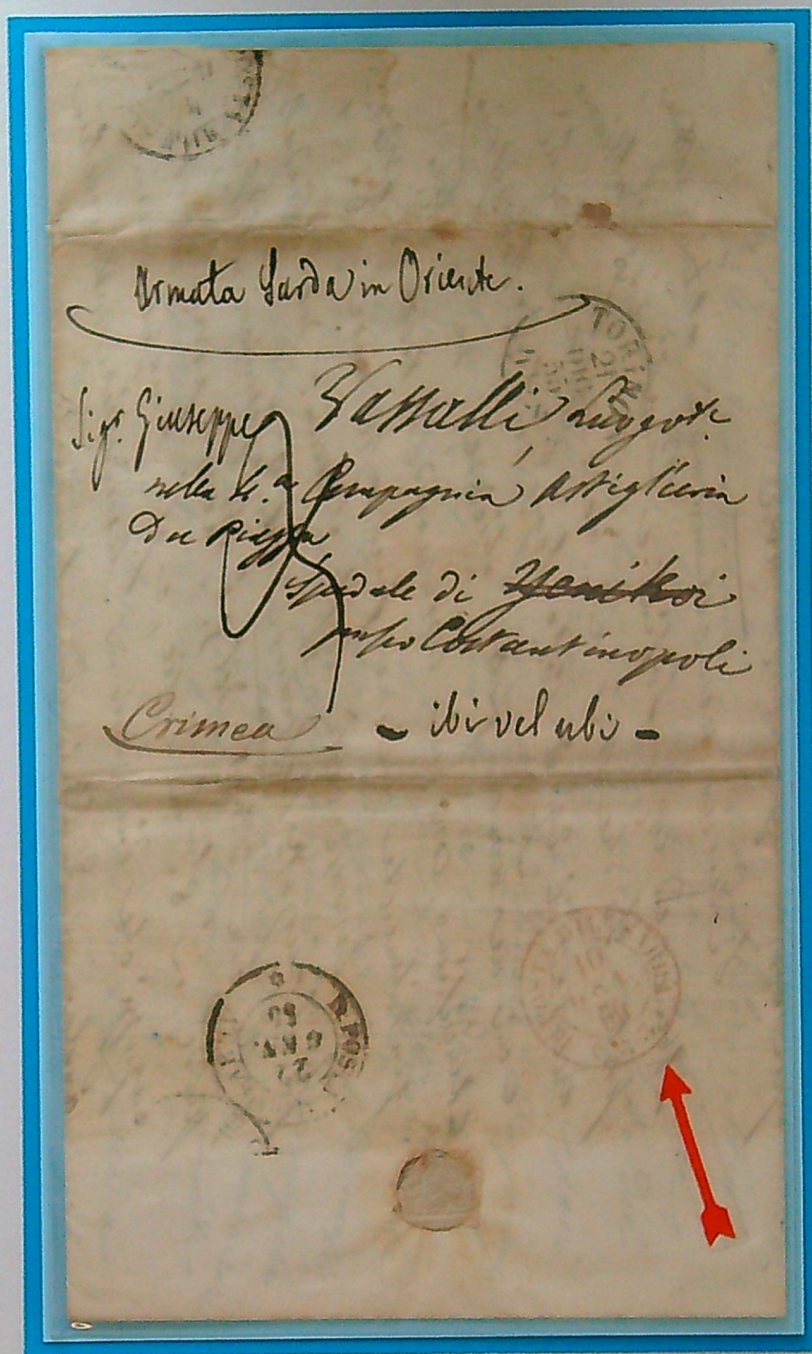 Armata Sarda in Oriente.
TORINO
21
DIC
55
Sigr. Giuseppe Vassalli Luogote.
nella 4.a Compagnia Artiglieria
Da Piazza
Spedale di Yenikoi
presso Costantinopoli
Crimea - ibi vel ubi -